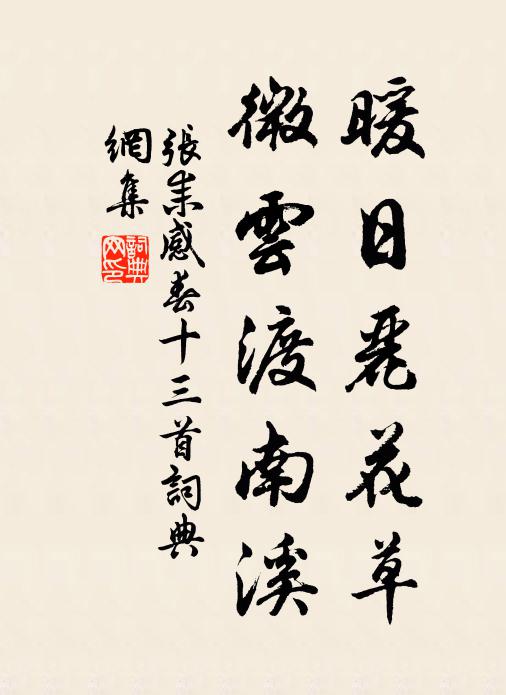 暖日麗花草
微雲渡南溪
張耒感春十三首詞典
網集
詞典网印